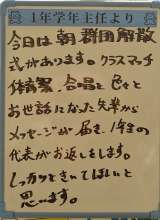 1年学年主任より
今日は朝 群団解散
式があります。クラスマッチ
体育祭、合唱と色々と
お世話になった先輩から
メッセージが届き、1年生の
代表がお返しをします。
しっかりときいてほしいと
思います。